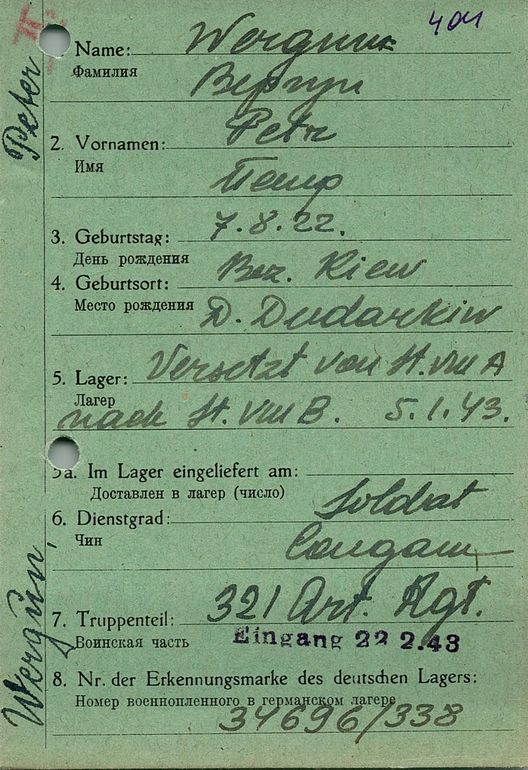 404
Name: Wergun
Фамилия Вергун
2. Vornamen: Petr
Имя Петр
3. Geburtstag: 7.8.22.
День рождения
4. Geburtsort: Bez. Kiew
Место рождения D. Dudarkiw
5. Lager: Versetzt von St. VIII A
Лагер nach St. VIII B. 5.1.43.
5a. Im Lager eingeliefert am:
Доставлен в лагер (число)
6. Dienstgrad: Soldat
Чин Солдат
7. Truppenteil: 321 Art. Rgt.
Воинская часть Eingang 22 2.43
8. Nr. der Erkennungsmarke des deutschen Lagers:
Номер военнопленного в германском лагере
34696/338
Wergun, Peter